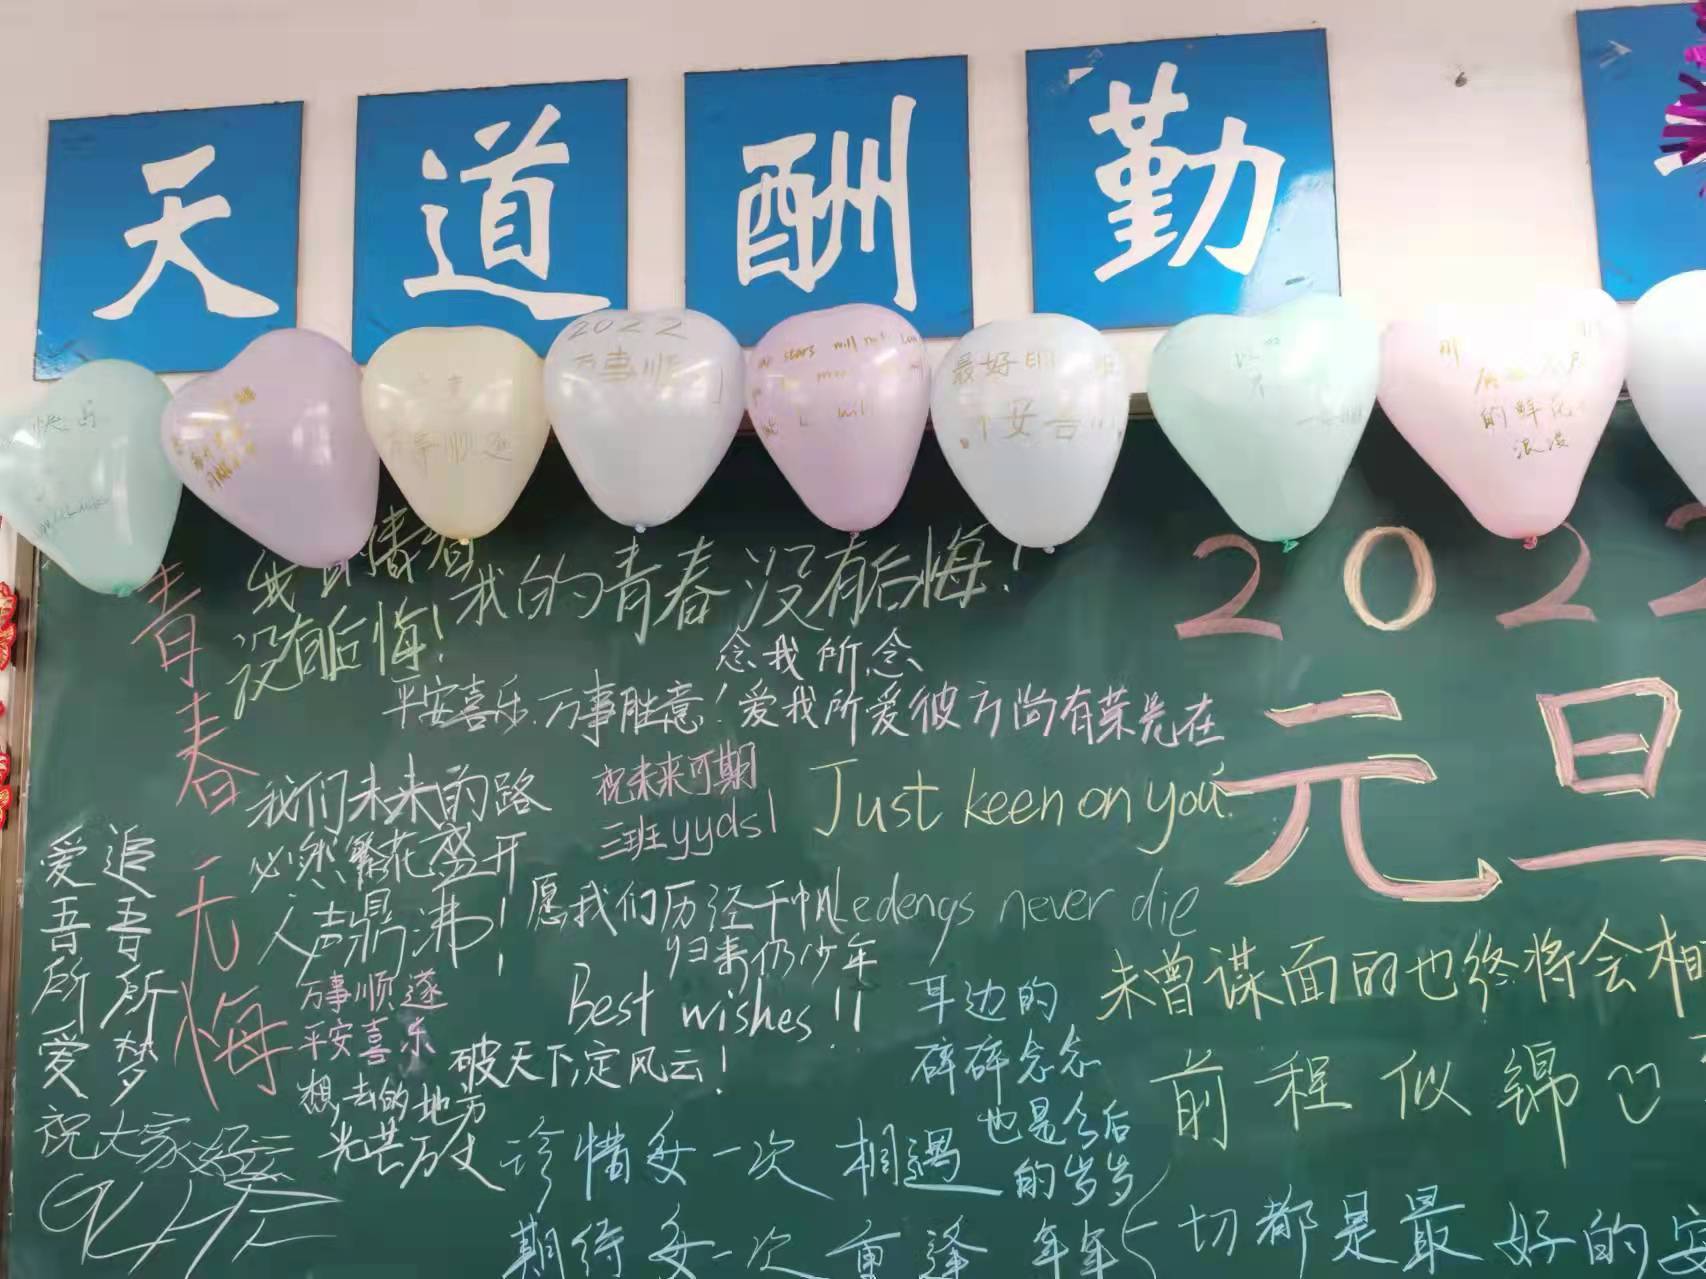 天道酬勤
2022
万事顺
stars will not
最好
平安喜
万事顺遂
的鲜花
浪漫
青春无悔
我的青春
没有后悔!
我的青春没有后悔!
2022
元旦
念我所念
平安喜乐.万事胜意!
爱我所爱
彼方尚有荣光在
祝未来可期
三班yyds
Just keen on you.
我们未来的路
必然繁花盛开
人声鼎沸!
追吾所梦
爱吾所爱
愿我们历经千帆
归来仍少年
Ledengs never die
Best wishes!!
万事顺遂
平安喜乐
破天下定风云!
想去的地方
光芒万丈
祝大家好运
耳边的
碎碎念念
也是今后
的岁岁
年年
未曾谋面的也终将会相
前程似锦
珍惜每一次相遇
期待每一次重逢
一切都是最好的安